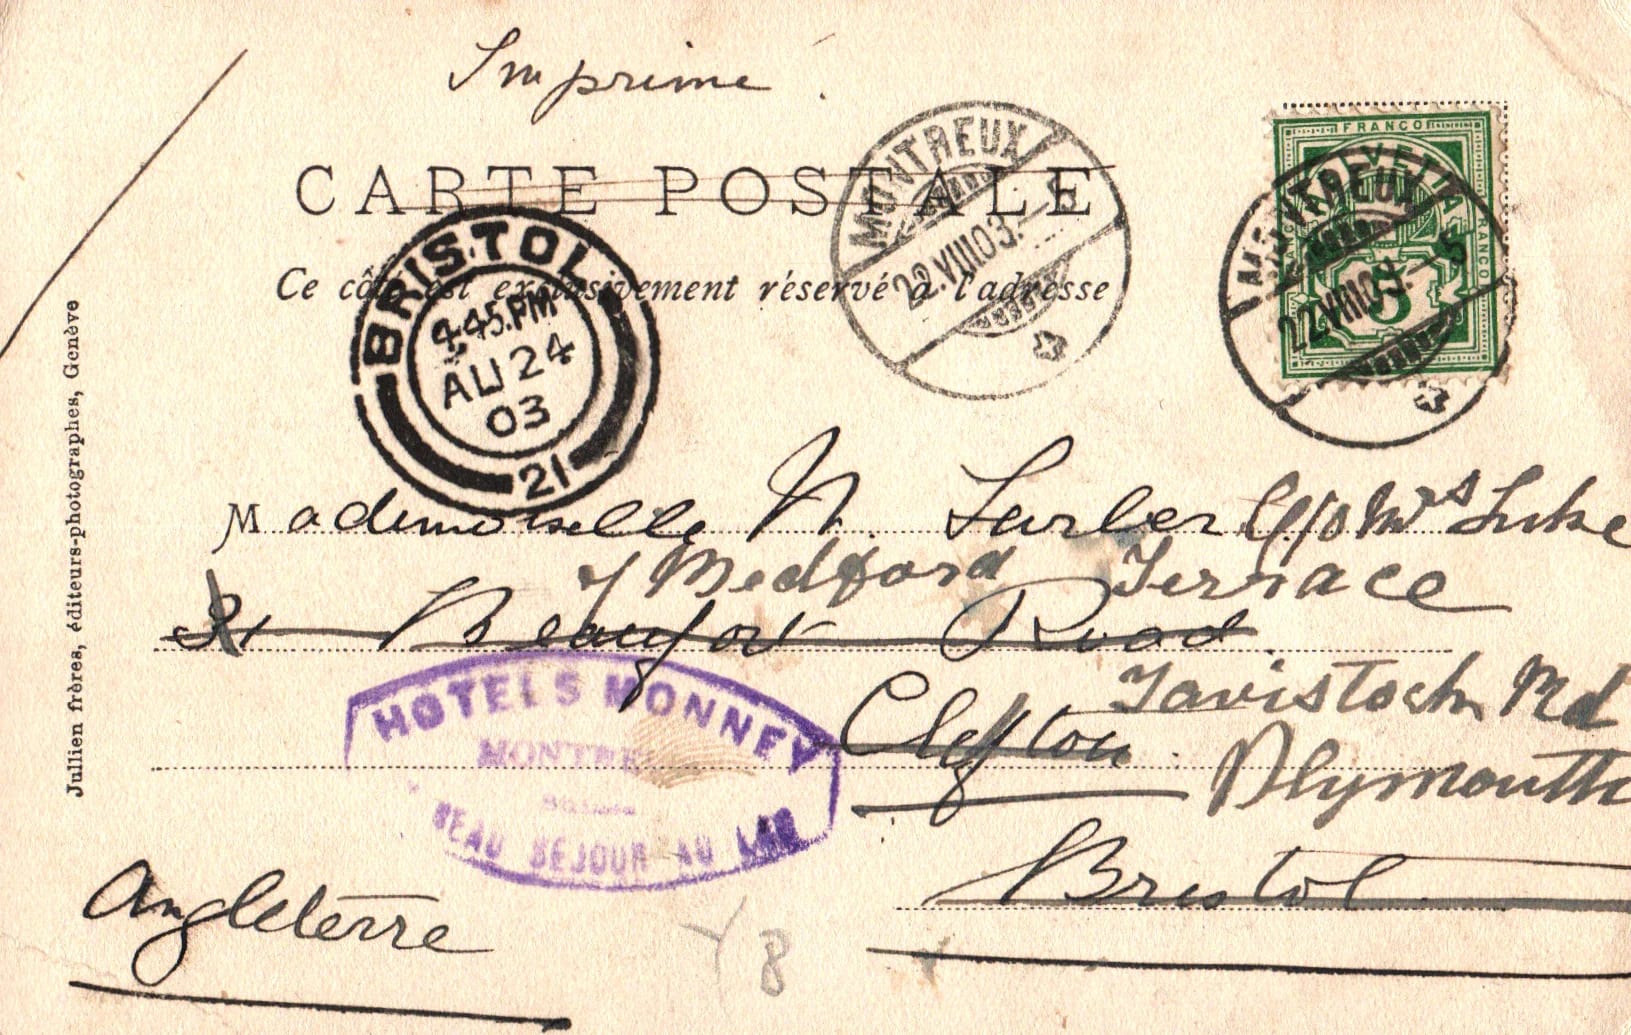 Imprimé
CARTE POSTALE
Ce côté est exclusivement réservé à l'adresse
MONTREUX
22.VIII03.-5
FRANCO
HELVETIA
FRANCO
FRANCO
5
MONTREUX
22.VIII03.-5
BRISTOL
4.45.PM
AU 24
03
21
Julien frères, éditeurs-photographes, Genève
Mademoiselle N. c/o Mrs Luke
7 Medford Terrace
31 Beaufort Road
Tavistock Rd
Clifton
Plymouth
Bristol
HÔTELS MONNEY
MONTREUX
BEAU SÉJOUR AU LAC
Angleterre
8